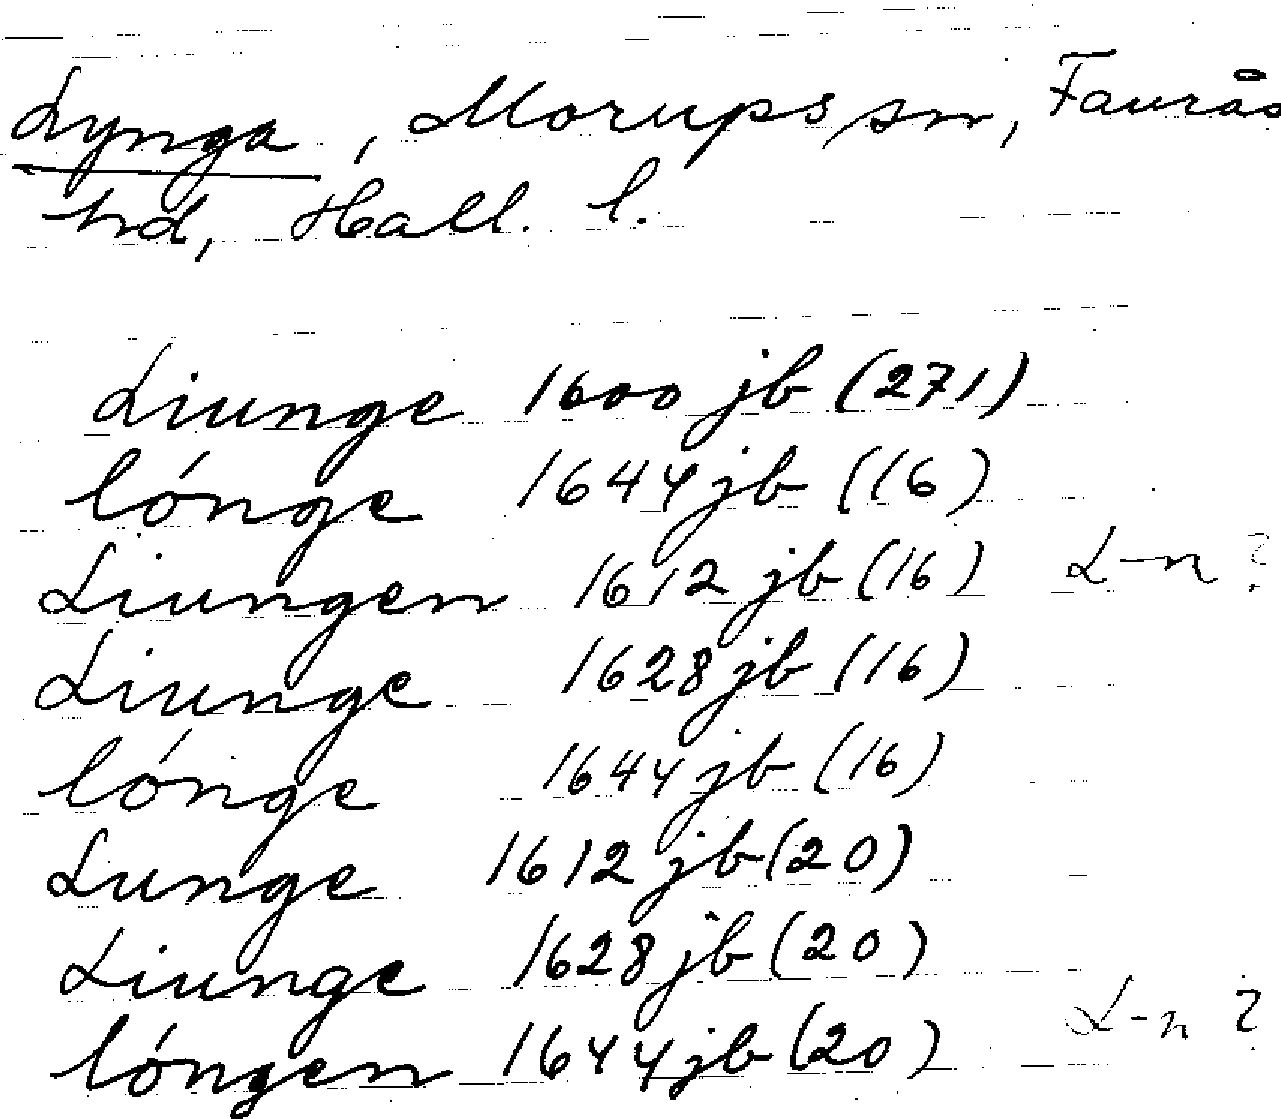 Lynga, Morups sn, Faurås
hd, Hall. l.
Liunge 1600 jb (271)
lónge 1644 jb (16)
Liungen 1612 jb (16) L-n ?
Liunge 1628 jb (16)
lónge 1644 jb (16)
Lunge 1612 jb (20)
Liunge 1628 jb (20)
lóngen 1644 jb (20) L-n ?